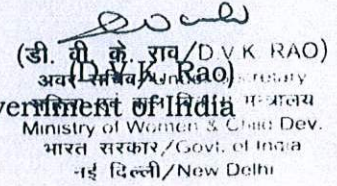 (डी. वी. के. राव/D V K RAO)
(D.V.K. Rao)
अवर सचिव/
Government of India
मंत्रालय
Ministry of Women & Child Dev.
भारत सरकार/Govt. of India
नई दिल्ली/New Delhi